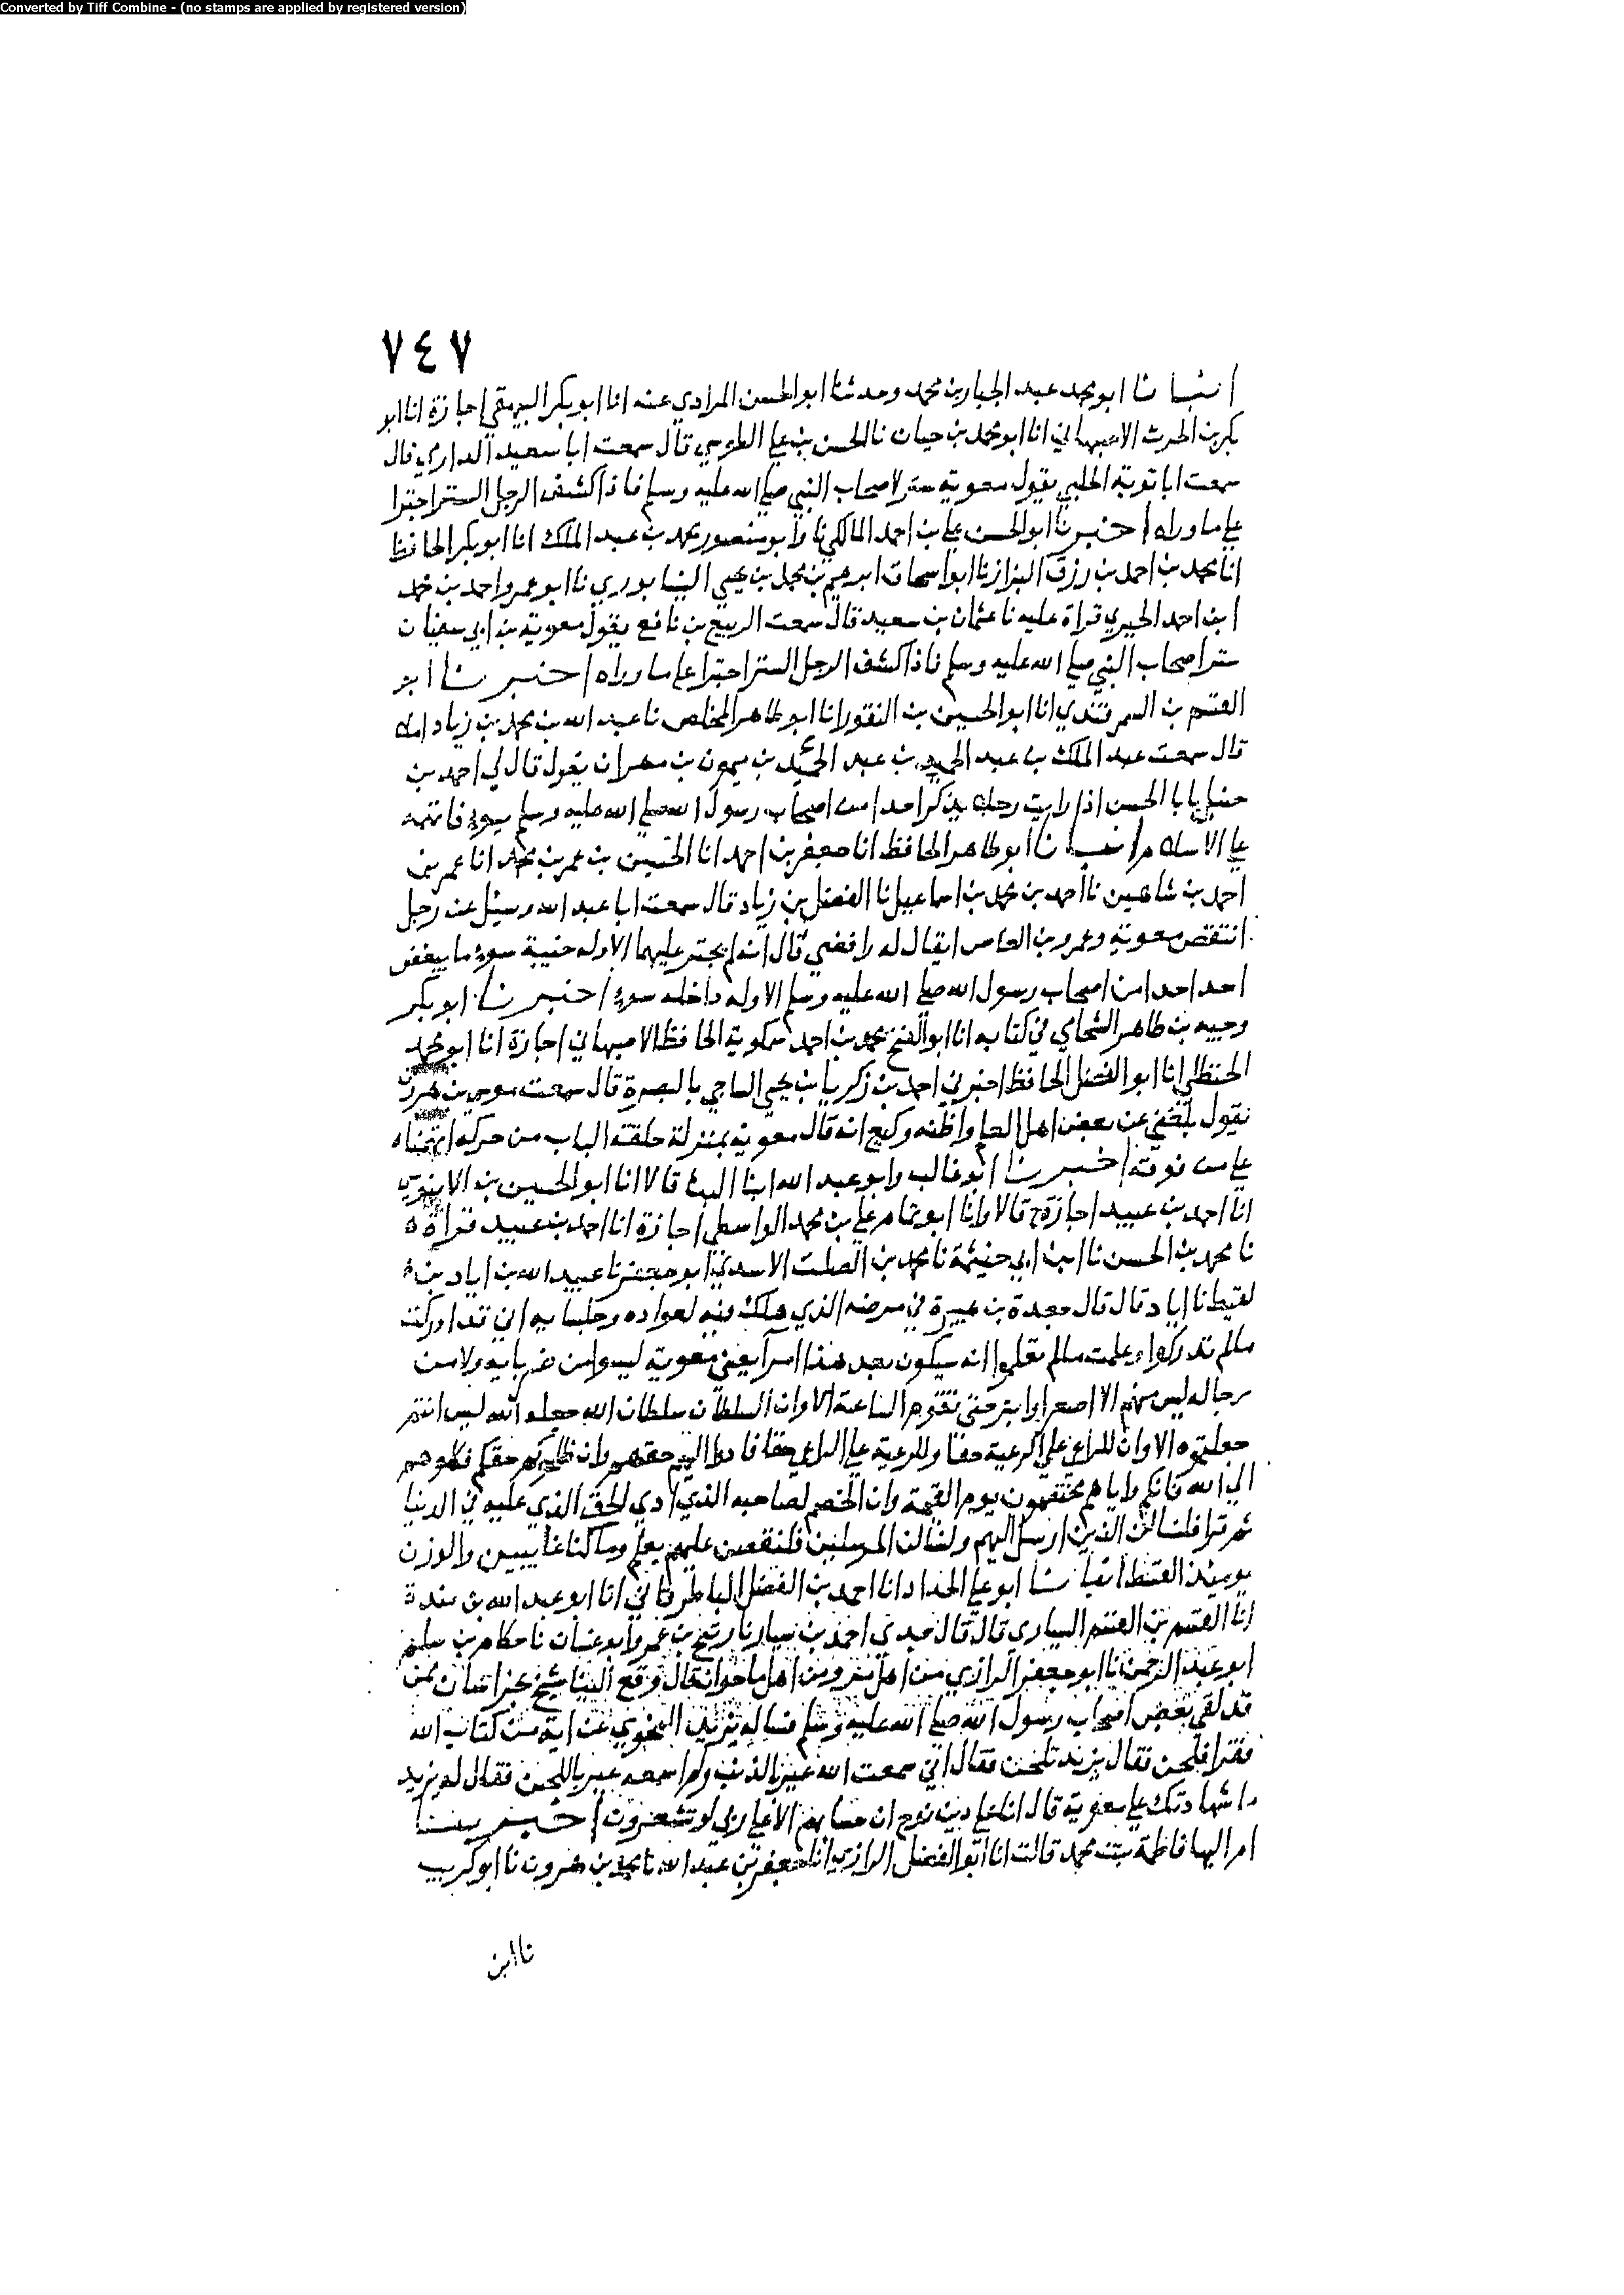 Converted by Tiff Combine - (no stamps are applied by registered version)
٧٤٧
انبانا ابو محمد عبد الجبار بن محمد وحدثنا ابو الحسن المرادي عنه انا ابو بكر البيهقي اجازة انا ابو
بكر بن الحرث الاصبهاني انا ابو محمد بن حيان نا الحسن بن علي الطوسي قال سمعت ابا سعيد الداري قال
سمعت ابا توبة الحلبي يقول معوية ستر لاصحاب النبي صلى الله عليه وسلم فاذا كشف الرجل الستر اجترا
علي ما وراه اخبرنا ابو الحسن علي بن احمد المالكي نا وابو منصور محمد بن عبد الملك انا ابو بكر الحافظ
انا محمد بن احمد بن رزق البزاز نا ابو اسحاق ابرهيم بن محمد بن يحيي النيسابوري نا ابو عمرو احمد بن محمد
ابن احمد الحيري قراة عليه نا عثمان بن سعيد قال سمعت الربيع بن نافع يقول معوية بن ابي سفيان
ستر اصحاب النبي صلي الله عليه وسلم فاذا كشف الرجل الستر اجترا علي ما وراه اخبرنا ابو
القسم بن السمرقندي انا ابو الحسين بن النقور انا ابو طاهر المخلص نا عبد الله بن محمد بن زياد املا
قال سمعت عبد الملك بن عبد الحميد بن عبد الحميد بن ميمون بن مهران يقول قال لي احمد بن
حنبل يا با الحسن اذا رايت رجلا يذكر احدا من اصحاب رسول الله صلي الله عليه وسلم بسوء فاتهمه
علي الاسلام انبانا ابو طاهر الحافظ انا جعفر بن احمد انا الحسين بن عمر بن محمد انا عمر بن
احمد بن شاهين نا احمد بن محمد بن اسماعيل نا الفضل بن زياد قال سمعت ابا عبد الله وسيئل عن رجل
انتقص معوية وعمرو بن العاص ايقال له رافضي قال انه لم يجتر عليهما الا وله خبيئة سوء ما يبغض
احد احدا من اصحاب رسول الله صلي الله عليه وسلم الا وله داخلة سوء اخبرنا ابو بكر
وجيه بن طاهر الشحامي في كتابه انا ابو الفتح محمد بن احمد سمكوية الحافظ الاصبهاني اجازة انا ابو محمد
الحنظلي انا ابو الفضل الحافظ اخبرني احمد بن زكريا بن يحيي الساجي بالبصرة قال سمعت موسي بن هرون
يقول بلغني عن بعض اهل العلم واظنه وكيع انه قال معوية بمنزلة حلقة الباب من حركه اتهمناه
علي من فوقه اخبرنا ابو غالب وابو عبد الله ابنا البنا قالا انا ابو الحسين بن الابنوسي
انا احمد بن عبيد اجازة ح قالا وانا ابو تمام علي بن محمد الواسطي اجازة انا احمد بن عبيد قراة
نا محمد بن الحسن نا ابن ابي خيثمة نا محمد بن الصلت الاسدي ابو جعفر نا عبيد الله بن اياد بن
لقيط نا اياد قال قال جعدة بن هبيرة في مرضه الذي هلك فيه لعواده وجلسايه اني قد ادركت
ما لم تدركوا وعلمت ما لم تعلموا انه سيكون بعد هذا امرا يعني معوية ليسوا من ضربايه ولا من
رجاله ليس منهم الا اصعر او ابتر حتي تقوم الساعة الا وان السلطان سلطان الله جعله الله ليس انتم
جعلتموه الا وان للراعي علي الرعية حقا وللرعية علي الراعي حقا فادوا اليهم حقهم وان ظلموكم حقكم فكلوهم
الي الله فانكم واياهم تختصمون يوم القيمة وان الخصم لصاحبه الذي ادي الحق الذي عليه في الدنيا
ثم قرا فلنسالن الذين ارسل اليهم ولنسالن المرسلين فلنقصن عليهم بعلم وما كنا غايبين والوزن
يوميئذ القسط انبانا ابو علي الحداد انا احمد بن الفضل الباطرقاني انا ابو عبد الله بن مندة
انا القسم بن القسم السياري قال قال جدي احمد بن سيار نا رتيخ بن عمرو ابو غسان نا حكام بن سلم
ابو عبد الرحمن نا ابو جعفر الرازي من اهل مرو من اهل ماخوان قال وقع الينا شيخ بخراسان ممن
قد لقي بعض اصحاب رسول الله صلي الله عليه وسلم فساله يزيد النحوي عن اية من كتاب الله
فقرا فلحن فقال يزيد تلحن فقال اني سمعت الله عير بالذنب ولم اسمعه عير باللحن فقال له يزيد
ما شهادتك علي معوية قال انا علي دين نوح ان حسابهم الا علي ربي لو تشعرون اخبرتنا
ام البها فاطمة بنت محمد قالت انا ابو الفضل الرازي انا جعفر بن عبد الله نا محمد بن هرون نا ابو كريب
نا ابن